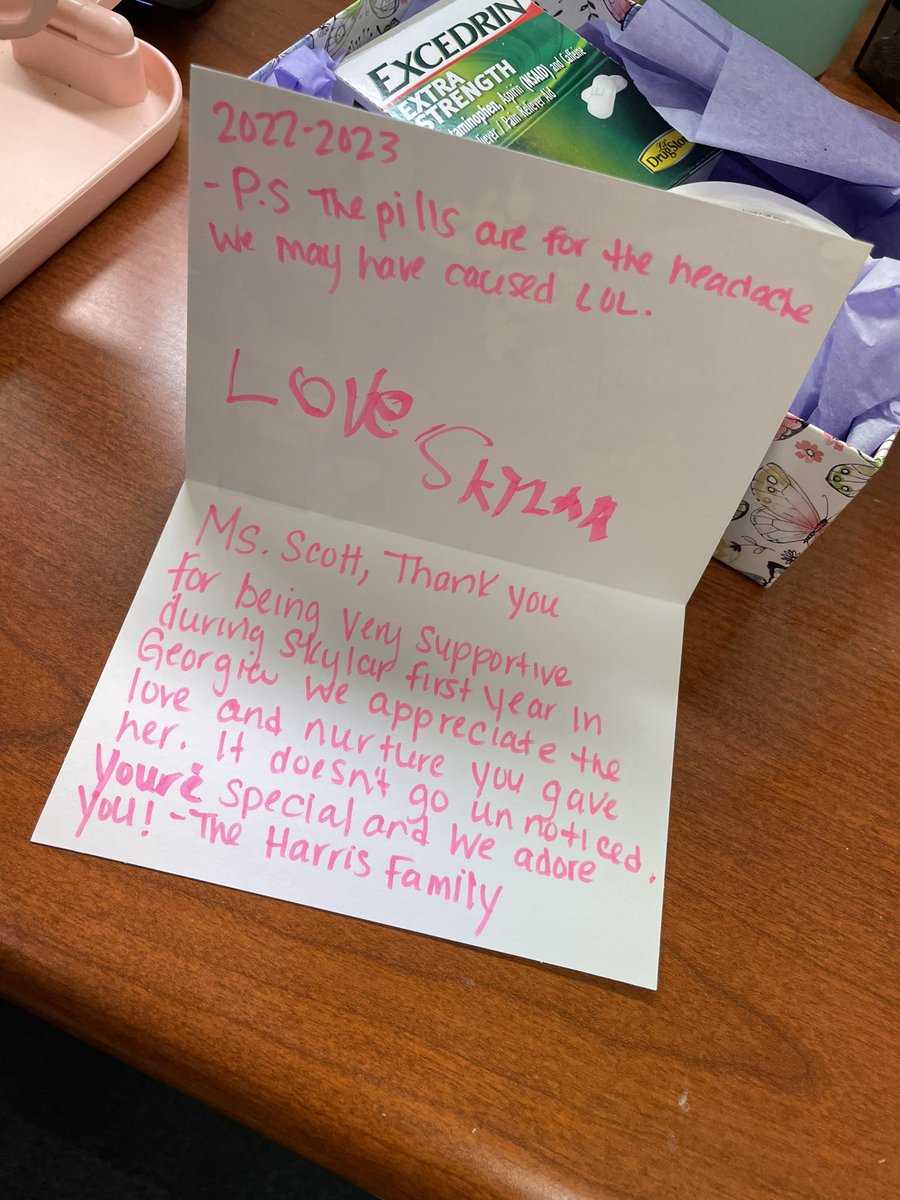 EXCEDRIN
EXTRA
STRENGTH
taminophen, Aspirin (NSAID) and Caffeine
iever / Pain Reliever Aid
Lil'
DrugStore
2022-2023
- P.S The pills are for the headache
We may have caused LOL.
Love
Skylar
Ms. Scott, Thank you
for being very supportive
during Skylar first year in
Georgia we appreciate the
love and nurture you gave
her. It doesn't go unnoticed.
You're special and we adore
You! - The Harris Family